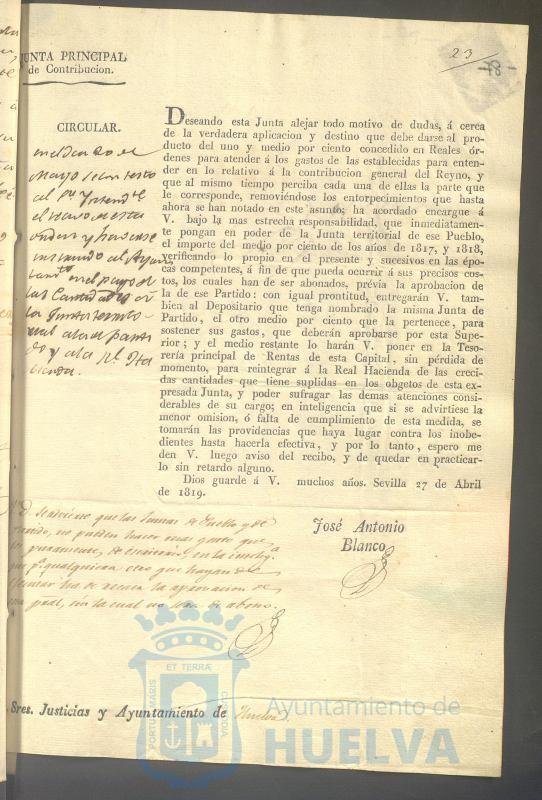 JUNTA PRINCIPAL
de Contribucion.
23
78
CIRCULAR.
Deseando esta Junta alejar todo motivo de dudas, á cerca
de la verdadera aplicacion y destino que debe darse al pro-
ducto del uno y medio por ciento concedido en Reales ór-
denes para atender á los gastos de las establecidas para enten-
der en lo relativo á la contribucion general del Reyno, y
que al mismo tiempo perciba cada una de ellas la parte que
le corresponde, removiéndose los entorpecimientos que hasta
ahora se han notado en este asunto; ha acordado encargue á
V. bajo la mas estrecha responsabilidad, que inmediatamen-
te pongan en poder de la Junta territorial de ese Pueblo,
el importe del medio por ciento de los años de 1817, y 1818,
verificando lo propio en el presente y sucesivos en las épo-
cas competentes, á fin de que pueda ocurrir á sus precisos cos-
tos, los cuales han de ser abonados, prévia la aprobacion de
la de ese Partido: con igual prontitud, entregarán V. tam-
bien al Depositario que tenga nombrado la misma Junta de
Partido, el otro medio por ciento que la pertenece, para
sostener sus gastos, que deberán aprobarse por esta Supe-
rior; y el medio restante lo harán V. poner en la Teso-
rería principal de Rentas de esta Capital, sin pérdida de
momento, para reintegrar á la Real Hacienda de las creci-
das cantidades que tiene suplidas en los objetos de esta ex-
presada Junta, y poder sufragar las demas atenciones consi-
derables de su cargo; en inteligencia que si se advirtiese la
menor omision, ó falta de cumplimiento de esta medida, se
tomarán las providencias que haya lugar contra los inobe-
dientes hasta hacerla efectiva, y por lo tanto, espero me
den V. luego aviso del recibo, y de quedar en practicar-
lo sin retardo alguno.
Dios guarde á V. muchos años. Sevilla 27 de Abril
de 1819.
José Antonio
Blanco
Mayo
al
el
y
en el pago de
las Cantidades
la Junta
y a la Rl. Ha
cienda.
que las Juntas de Pueblo y de
no pueden hacer mas gasto que
que pa. qualquiera otro que hayan de
la aprovacion de
sin la cual no sera de abono.
Sres. Justicias y Ayuntamiento de Huelva
ET TERRA
PORTUS MARIS
CUSTODIA
Ayuntamiento de
HUELVA